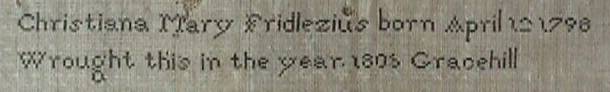 Christiana Mary Fridlezius born April 12 1798
Wrought this in the year 1806 Gracehill